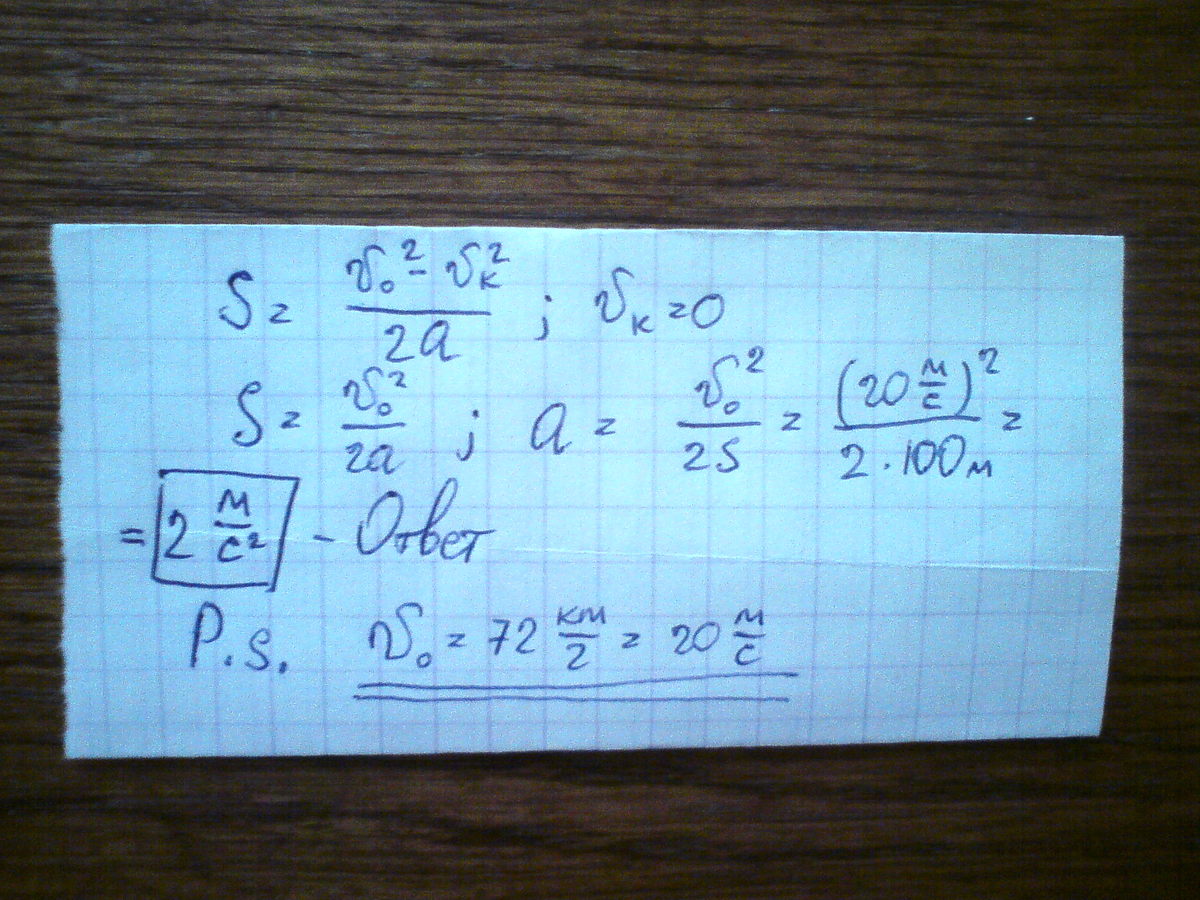 S = (v₀² - vк²)/(2a) ; vк = 0
S = v₀²/(2a) ; a = v₀²/(2S) = (20 м/с)²/(2 · 100 м) =
= 2 м/с² - Ответ
P.s. v₀ = 72 км/г = 20 м/с